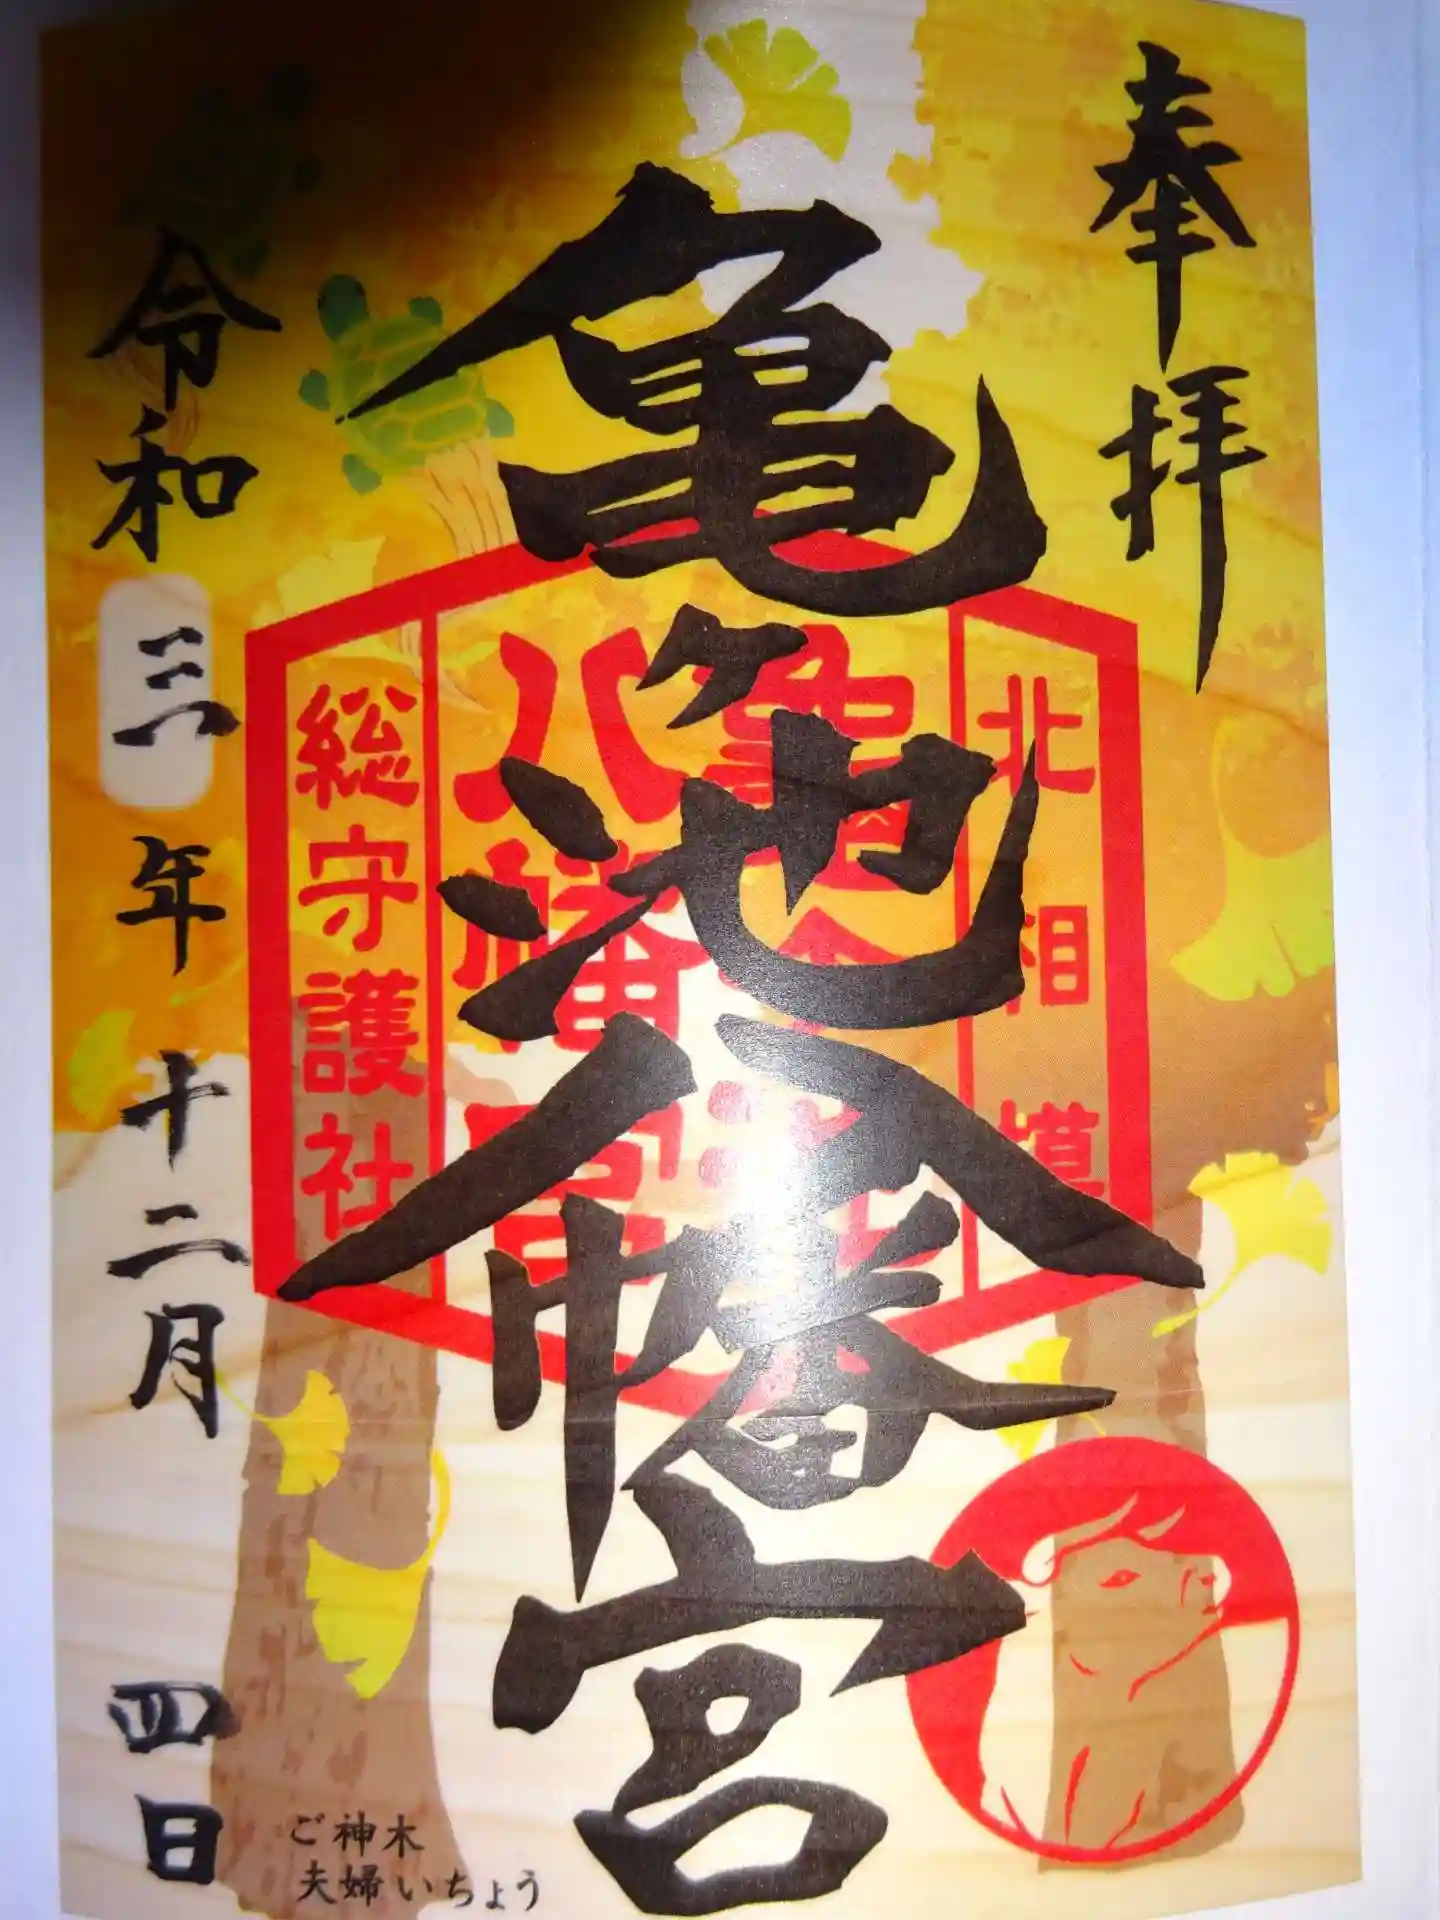 奉拝
亀ヶ池八幡宮
北相模
八幡宮
総守護社
令和三年十二月四日
ご神木
夫婦いちょう